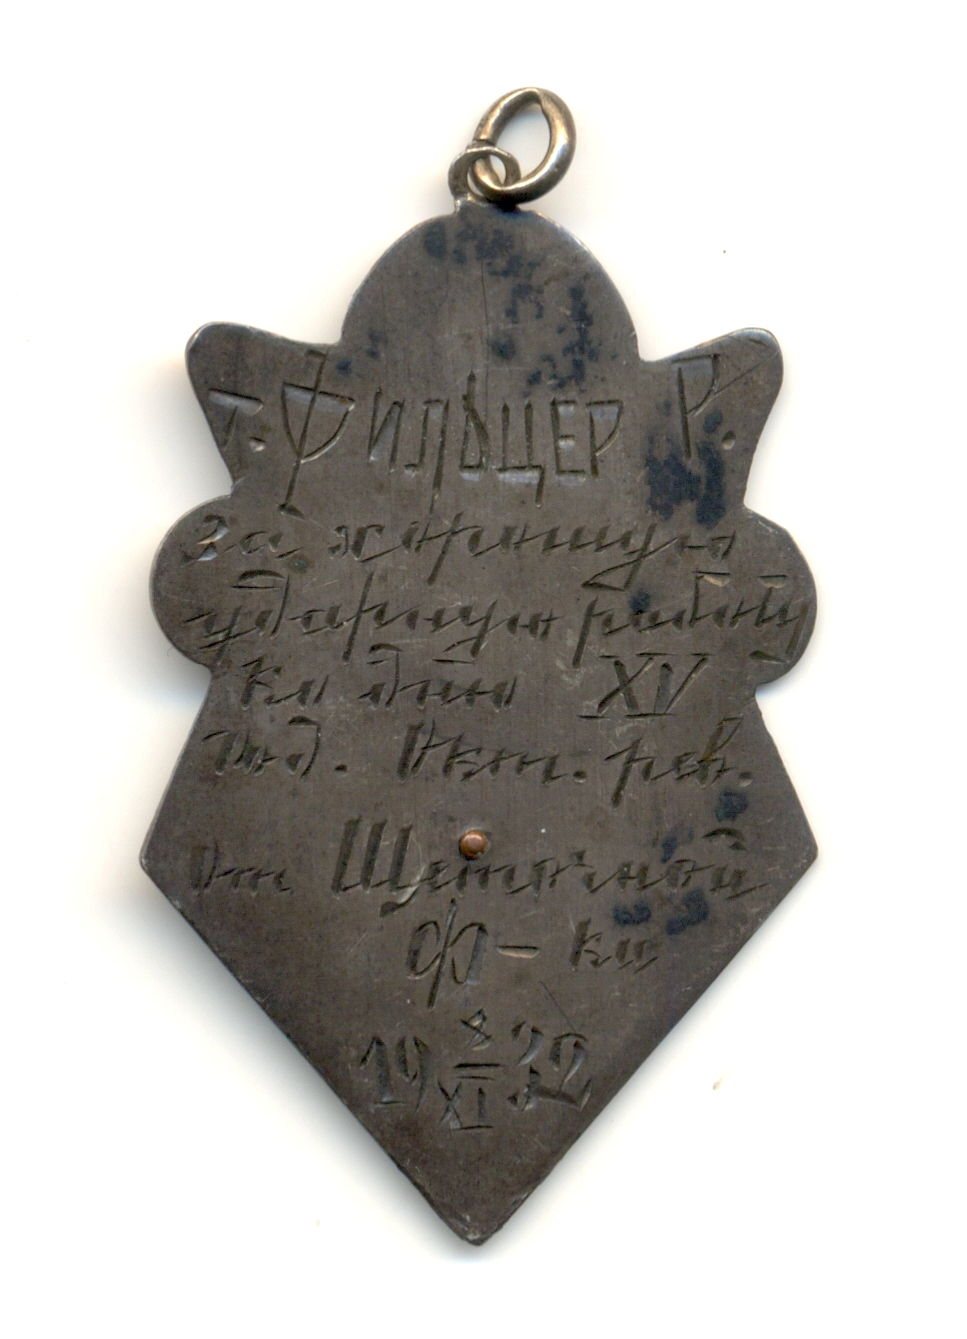 т. ФИЛЬЦЕР Р.
За хорошую
ударную работу
Ко дню XV
год. Окт. рев.
От Щеточной
ф-ки
19 8/XI 32